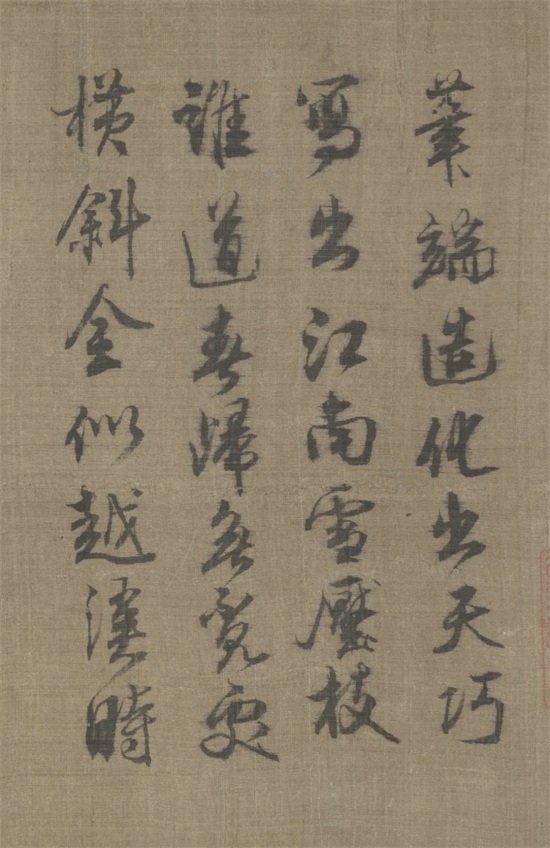 筆端造化出天巧
寫出江南雪壓枝
誰道春歸無覓處
橫斜全似越溪時